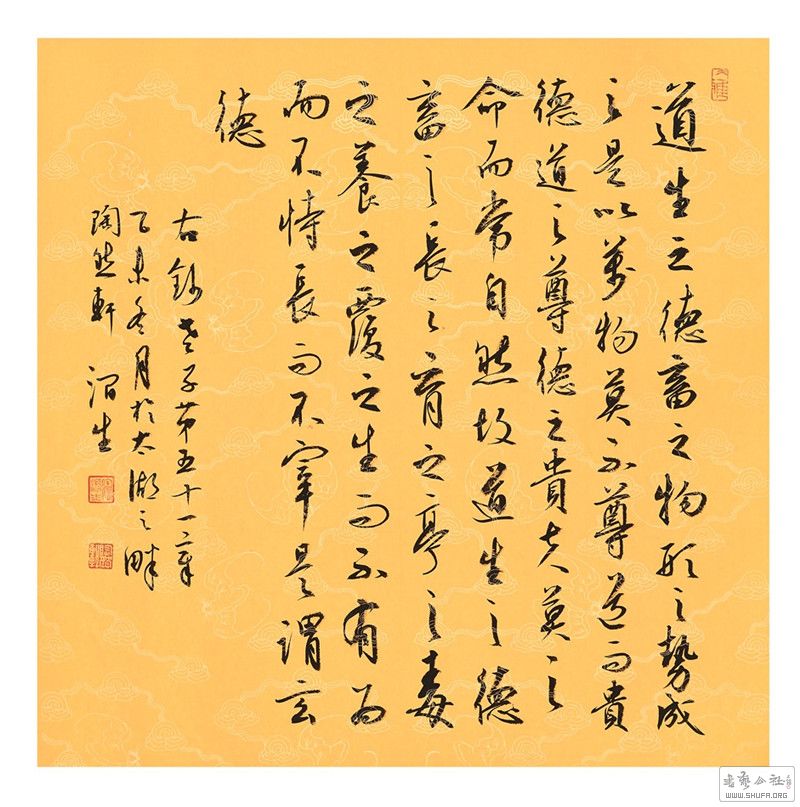 道生之德畜之物形之勢成
之是以萬物莫不尊道而貴
德道之尊德之貴夫莫之
命而常自然故道生之德
畜之長之育之亭之毒
之養之覆之生而不有為
而不恃長而不宰是謂玄
德
右錄老子第五十一章
乙未冬月於太湖之畔
陶然軒 滔生
書藝公社
WWW.SHUFA.ORG